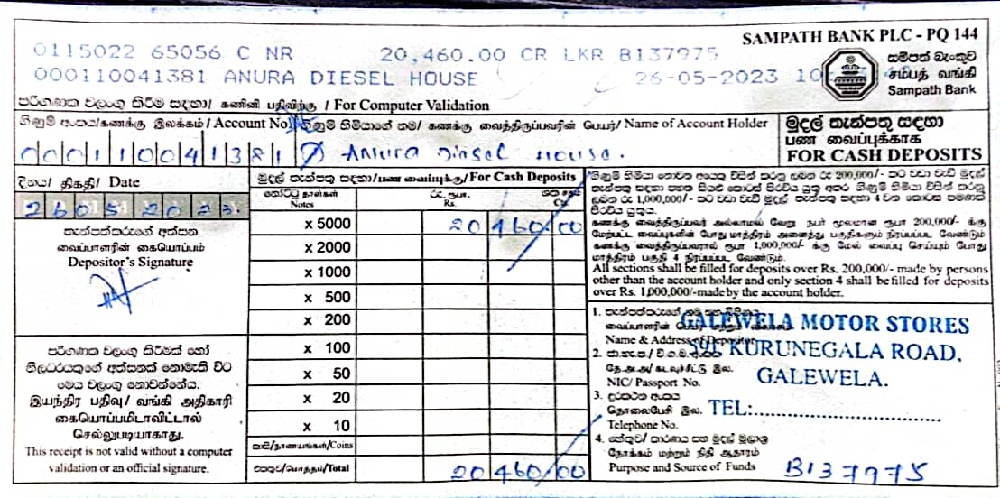 SAMPATH BANK PLC - PQ 144
0115022 65056 C NR 20,460.00 CR LKR B137975
000110041381 ANURA DIESEL HOUSE 26-05-2023
සම්පත් බැංකුව
சம்பத் வங்கி
Sampath Bank
පරිගණක වලංගු කිරීම සඳහා / கணினி பதிவிற்கு / For Computer Validation
ගිණුම් අංකය/கணக்கு இலக்கம் / Account No. ගිණුම් හිමියාගේ නම/ கணக்கு வைத்திருப்பவரின் பெயர்/ Name of Account Holder
000110041381 Anura Diesel House.
මුදල් තැන්පතු සඳහා
பண வைப்புக்காக
FOR CASH DEPOSITS
දිනය/ திகதி/ Date
26 05 2023
තැන්පත්කරුගේ අත්සන
வைப்பாளரின் கையொப்பம்
Depositor's Signature
පරිගණක වලංගු කිරීමක් හෝ
නිලධරයකුගේ අත්සනක් නොමැති විට
මෙය වලංගු නොවන්නේය.
இயந்திர பதிவு/ வங்கி அதிகாரி
கையொப்பமிடாவிட்டால்
செல்லுபடியாகாது.
This receipt is not valid without a computer
validation or an official signature.
මුදල් තැන්පතු සඳහා/பண வைப்புக்கு/For Cash Deposits
නෝට්ටු/தாள்கள் රු. ரூபா.
Notes Rs.
x 5000 20 460.00
x 2000
x 1000
x 500
x 200
x 100
x 50
x 20
x 10
කාසි/நாணயங்கள்/Coins
එකතුව/மொத்தம்/Total 20 460/00
கணக்கு வைத்திருப்பவர் அல்லாமல் வேறு நபர் மூலமான ரூபா 200,000/- க்கு
மேற்பட்ட வைப்புகளின் போது மாத்திரம் அனைத்து பகுதிகளும் நிரப்பப்பட வேண்டும்
கணக்கு வைத்திருப்பவரால் ரூபா 1,000,000/- க்கு மேல் வைப்பு செய்யும் போது
மாத்திரம் பகுதி 4 நிரப்பப்பட வேண்டும்.
All sections shall be filled for deposits over Rs. 200,000/- made by persons
other than the account holder and only section 4 shall be filled for deposits
over Rs. 1,000,000/-made by the account holder.
1.
Name & Address of Depositor
GALEWELA MOTOR STORES
KURUNEGALA ROAD,
GALEWELA.
2.
NIC/ Passport No.
3. දුරකථන අංකය
தொலைபேசி இல.
Telephone No.
TEL:
4. හේතුව/ කාරණය සහ මුදල් මූලාශ්‍ර
நோக்கம் மற்றும் நிதி ஆதாரம்
Purpose and Source of Funds
B137975